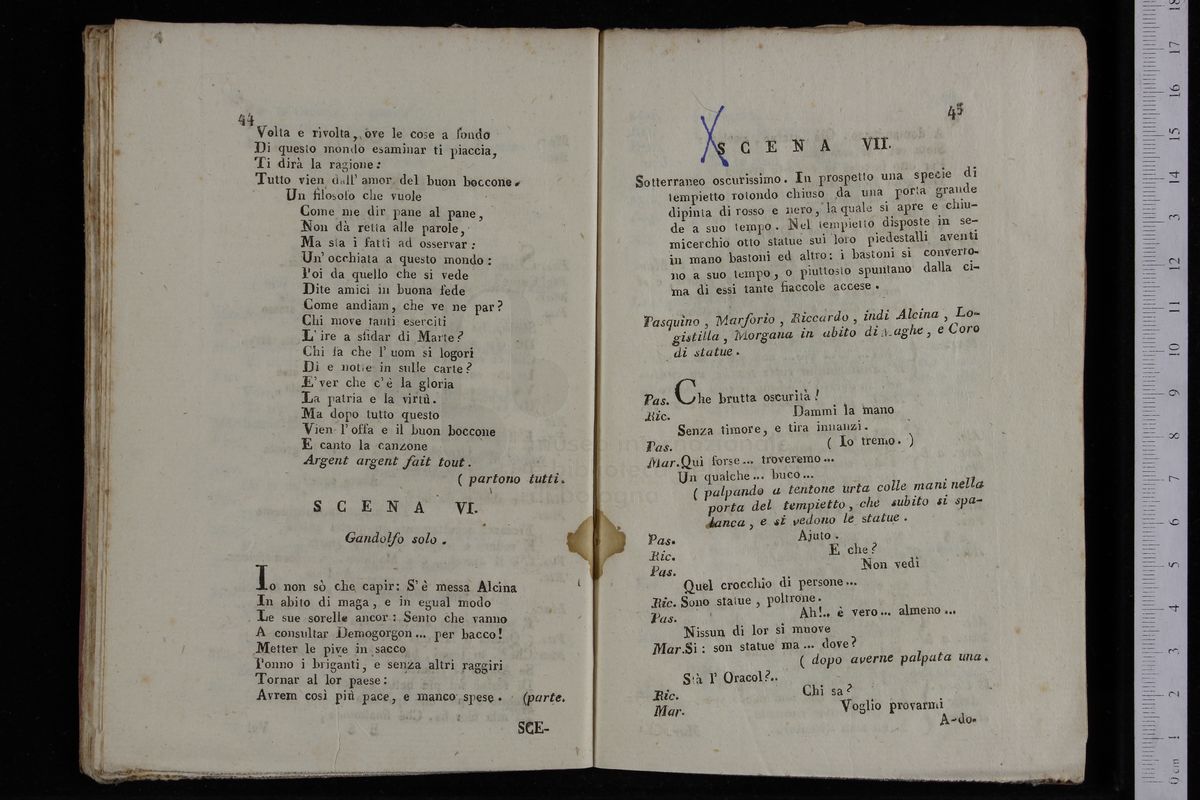 44
Volta e rivolta, ove le cose a fondo
Di questo mondo esaminar ti piaccia,
Ti dirà la ragione:
Tutto vien dall' amor del buon boccone.
Un filosofo che vuole
Come me dir pane al pane,
Non dà retta alle parole,
Ma sta i fatti ad osservar:
Un' occhiata a questo mondo:
Poi da quello che si vede
Dite amici in buona fede
Come andiam, che ve ne par?
Chi move tanti eserciti
L' ire a sfidar di Marte?
Chi fa che l' uom si logori
Di e notte in sulle carte?
E' ver che c' è la gloria
La patria e la virtù.
Ma dopo tutto questo
Vien l' offa e il buon boccone
E canto la canzone
Argent argent fait tout.
( partono tutti.
SCENA VI.
Gandolfo solo.
Io non sò che capir: S' è messa Alcina
In abito di maga, e in egual modo
Le sue sorelle ancor: Sento che vanno
A consultar Demogorgon... per bacco!
Metter le pive in sacco
Ponno i briganti, e senza altri raggiri
Tornar al lor paese:
Avrem così più pace, e manco spese. (parte.
SCE-
45
SCENA VII.
Sotterraneo oscurissimo. In prospetto una specie di
tempietto rotondo chiuso da una porta grande
dipinta di rosso e nero, la quale si apre e chiu-
de a suo tempo. Nel tempietto disposte in se-
micerchio otto statue sui loro piedestalli aventi
in mano bastoni ed altro: i bastoni si converto-
no a suo tempo, o piuttosto spuntano dalla ci-
ma di essi tante fiaccole accese.
Pasquino, Marforio, Riccardo, indi Alcina, Lo-
gistilla, Morgana in abito di Maghe, e Coro
di statue.
Pas. Che brutta oscurità!
Ric. Dammi la mano
Senza timore, e tira innanzi.
Pas. ( Io tremo. )
Mar. Qui forse... troveremo...
Un qualche... buco...
( palpando a tentone urta colle mani nella
porta del tempietto, che subito si spa-
lanca, e si vedono le statue.
Pas. Ajuto.
Ric. E che?
Pas. Non vedi
Quel crocchio di persone...
Ric. Sono statue, poltrone.
Pas. Ah!.. è vero... almeno...
Nissun di lor si muove
Mar. Si: son statue ma... dove?
( dopo averne palpata una.
Stà l' Oracol?..
Ric. Chi sa?
Mar. Voglio provarmi
A-do-